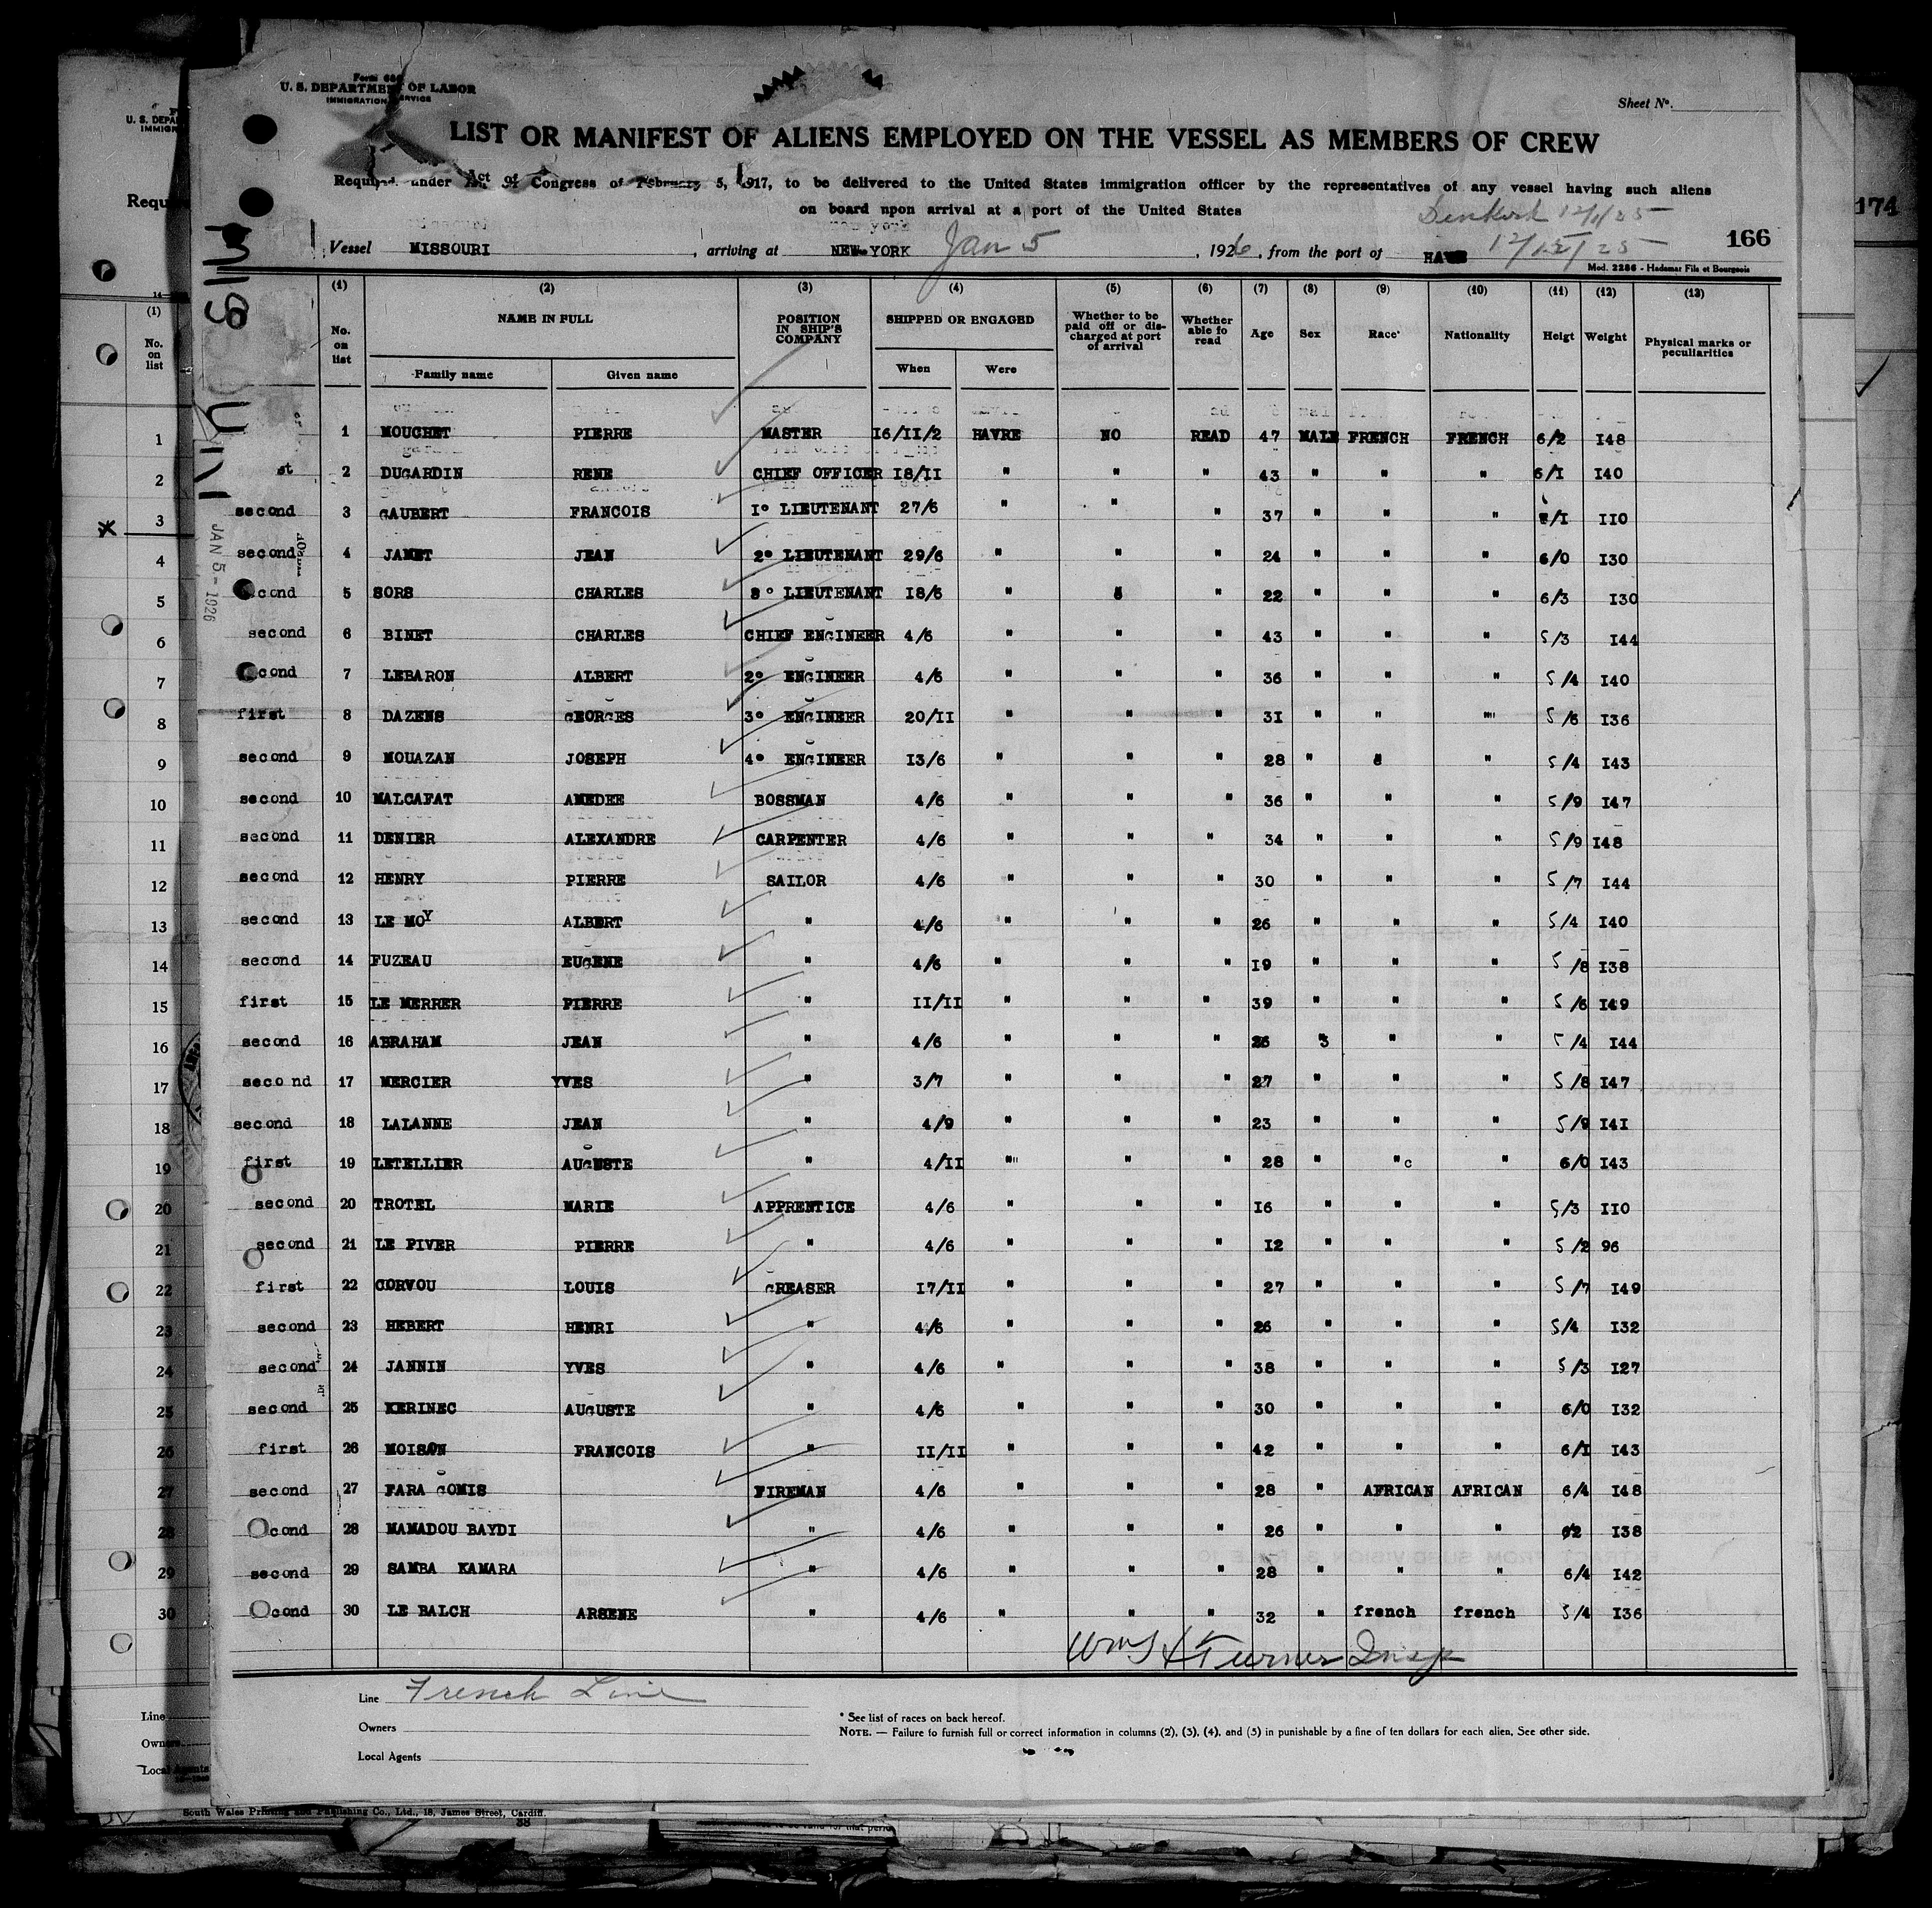 Form 686
U. S. DEPARTMENT OF LABOR
IMMIGRATION SERVICE
Sheet No.
LIST OR MANIFEST OF ALIENS EMPLOYED ON THE VESSEL AS MEMBERS OF CREW
Required under Act of Congress of February 5, 1917, to be delivered to the United States immigration officer by the representatives of any vessel having such aliens
on board upon arrival at a port of the United States
Dunkirk 12/1/25
166
174
Vessel MISSOURI, arriving at NEW-YORK Jan 5, 1926, from the port of HAVRE 12/12/25
Mod. 2286 - Hademar Fils et Bourgeois
(1) (2) (3) (4) (5) (6) (7) (8) (9) (10) (11) (12) (13)
No. on list NAME IN FULL POSITION IN SHIP'S COMPANY SHIPPED OR ENGAGED Whether to be paid off or discharged at port of arrival Whether able fo read Age Sex Race* Nationality Heigt Weight Physical marks or peculiarities
Family name Given name When Were
1 MOUCHET PIERRE MASTER I6/II/2 HAVRE NO READ 47 MALE FRENCH FRENCH 6/2 I48
st 2 DUGARDIN RENE CHIEF OFFICER I8/II " " " 43 " " " 6/I I40
second 3 GAUBERT FRANCOIS I° LIEUTENANT 27/6 " " " 37 " " " /I II0
second 4 JAMET JEAN 2° LIEUTENANT 29/6 " " " 24 " " " 6/0 I30
cond 5 SORS CHARLES 3° LIEUTENANT I8/6 " " " 22 " " " 6/3 I30
second 6 BINET CHARLES CHIEF ENGINEER 4/6 " " " 43 " " " 5/3 I44
cond 7 LEBARON ALBERT 2° ENGINEER 4/6 " " " 36 " " " 5/4 I40
first 8 DAZENS GEORGES 3° ENGINEER 20/II " " " 3I " " " 5/6 I36
second 9 MOUAZAN JOSEPH 4° ENGINEER I3/6 " " " 28 " " " 5/4 I43
second 10 MALCAFAT AMEDEE BOSSMAN 4/6 " " " 36 " " " 5/9 I47
second 11 DENIER ALEXANDRE CARPENTER 4/6 " " " 34 " " " 5/9 I48
second 12 HENRY PIERRE SAILOR 4/6 " " " 30 " " " 5/7 I44
second 13 LE MOY ALBERT " 4/6 " " " 26 " " " 5/4 I40
second 14 FUZEAU EUGENE " 4/6 " " " I9 " " " 5/8 I38
first 15 LE MERRER PIERRE " II/II " " " 39 " " " 5/6 I49
second 16 ABRAHAM JEAN " 4/6 " " " 26 " " " 5/4 I44
second 17 MERCIER YVES " 3/7 " " " 27 " " " 5/8 I47
second 18 LALANNE JEAN " 4/9 " " " 23 " " " 5/9 I4I
first 19 LETELLIER AUGUSTE " 4/II " " " 28 " " " 6/0 I43
second 20 TROTEL MARIE APPRENTICE 4/6 " " " I6 " " " 5/3 II0
second 21 LE PIVER PIERRE " 4/6 " " " I2 " " " 5/2 96
first 22 CORVOU LOUIS GREASER I7/II " " " 27 " " " 5/7 I49
second 23 HEBERT HENRI " 4/6 " " " 26 " " " 5/4 I32
second 24 JANNIN YVES " 4/6 " " " 38 " " " 5/3 I27
second 25 KERINEC AUGUSTE " 4/6 " " " 30 " " " 6/0 I32
first 26 MOISON FRANCOIS " II/II " " " 42 " " " 6/I I43
second 27 FARA GOMIS FIREMAN 4/6 " " " 28 " AFRICAN AFRICAN 6/4 I48
cond 28 MAMADOU BAYDI " 4/6 " " " 26 " " " 62 I38
second 29 SAMBA KAMARA " 4/6 " " " 28 " " " 6/4 I42
cond 30 LE BALCH ARSENE " 4/6 " " " 32 " french french 5/4 I36
JAN 5 - 1926
Wm H Turner Insp
Line French Line
Owners
Local Agents
* See list of races on back hereof.
NOTE. — Failure to furnish full or correct information in columns (2), (3), (4), and (5) in punishable by a fine of ten dollars for each alien. See other side.
South Wales Printing and Publishing Co., Ltd., 18, James Street, Cardiff.
38